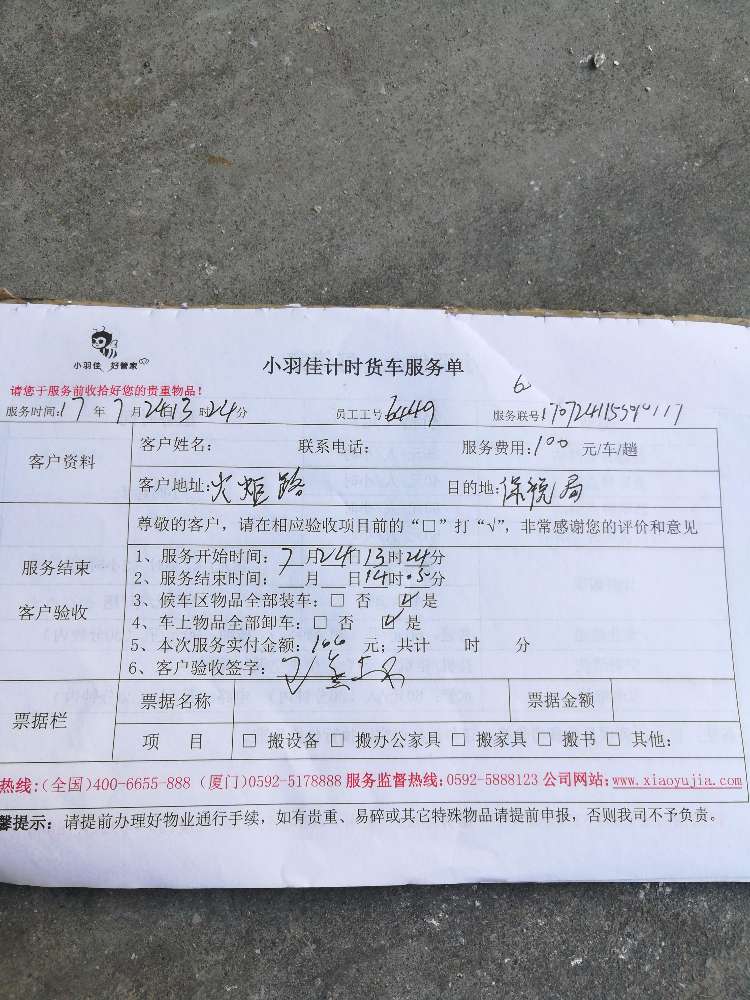 小羽佳 好管家
小羽佳计时货车服务单
请您于服务前收拾好您的贵重物品!
服务时间:17年7月24日13时24分 员工工号:6449 服务联号
客户资料
客户姓名: 联系电话: 服务费用:100 元/车/趟
客户地址:火炬路 目的地:保税局
服务结束
客户验收
尊敬的客户，请在相应验收项目前的“□”打“√”，非常感谢您的评价和意见
1、服务开始时间:7月24日13时24分
2、服务结束时间: 月 日14时·5分
3、候车区物品全部装车:□ 否 ☑ 是
4、车上物品全部卸车:□ 否 ☑ 是
5、本次服务实付金额:100 元；共计 时 分
6、客户验收签字:
票据栏
票据名称 票据金额
项 目 □ 搬设备 □ 搬办公家具 □ 搬家具 □ 搬书 □ 其他:
热线:(全国)400-6655-888 (厦门)0592-5178888 服务监督热线:0592-5888123 公司网站:www.xiaoyujia.com
馨提示: 请提前办理好物业通行手续，如有贵重、易碎或其它特殊物品请提前申报，否则我司不予负责。